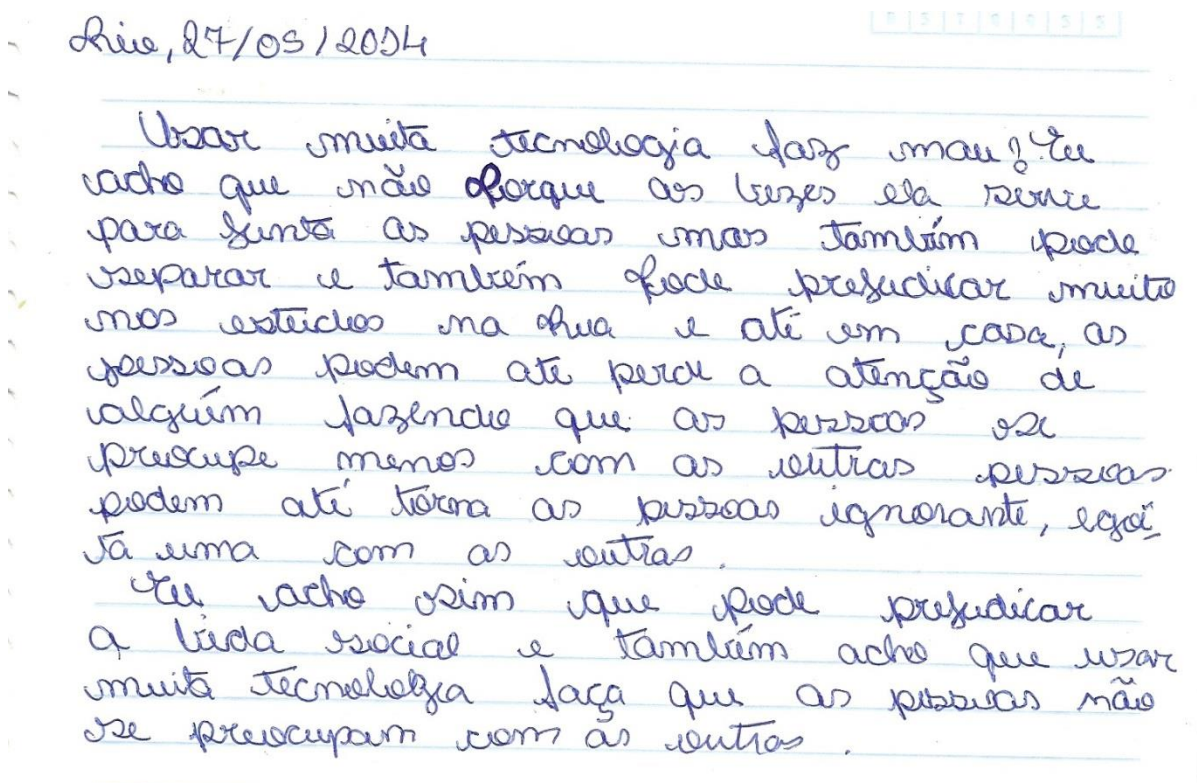 Rio, 27/05/2014
Usar muita tecnologia faz mau? Eu
acho que não Porque as vezes ela serve
para junta as pessoas mas também pode
separar e também pode prejudicar muito
nos estudos na Rua e até em casa, as
pessoas podem até perde a atenção de
alguém fazendo que as pessoas se
preocupe menos com as outras pessoas
podem até torna as pessoas ignorante, egoís
ta uma com as outras.
Eu acho sim que pode prejudicar
a vida social e também acho que usar
muita tecnologia faça que as pessoas não
se preocupam com as outras.